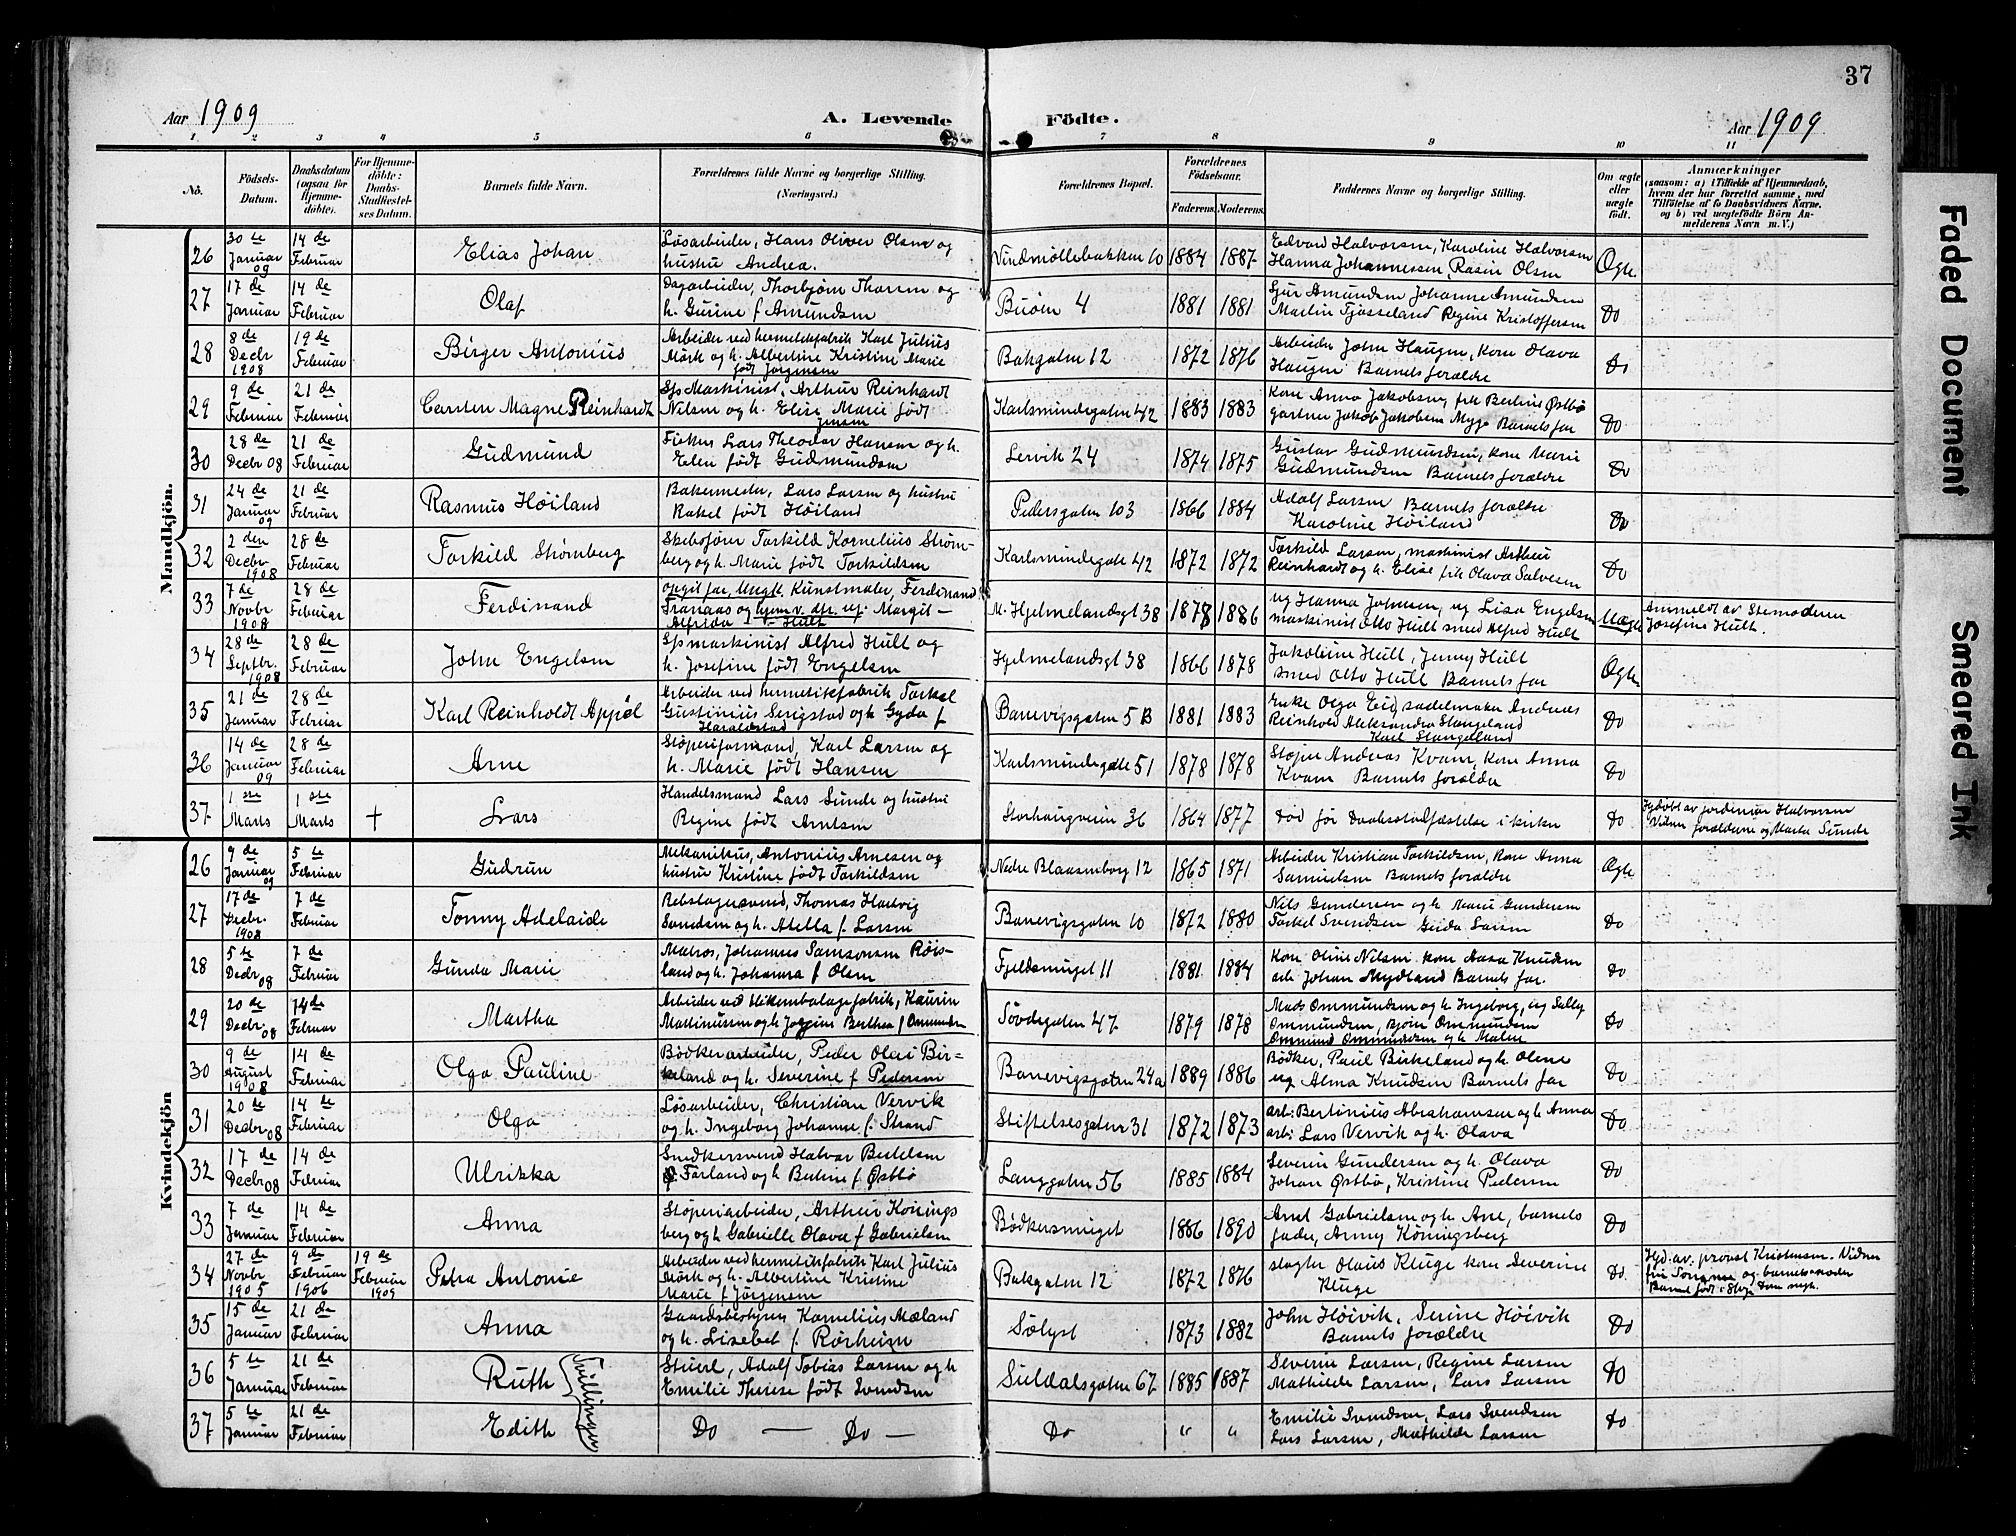 37
Aar 1909
A. Levende
Födte.
Aar 1909
1 2 3 4 5 6 7 8 9 10 11
No.
Födsels-
Datum.
Daabsdatum
(ogsaa for
Hjemme-
döbte).
For Hjemme-
döbte:
Daabs-
Stadfæstel-
ses Datum.
Barnets fulde Navn.
Forældrenes fulde Navne og borgerlige Stilling.
(Næringsvei.)
Forældrenes Bopæl.
Forældrenes
Födselsaar.
Faderens.
Moderens.
Faddernes Navne og borgerlige Stilling.
Om ægte
eller
uægte
födt.
Anmærkninger
(saasom: a) i Tilfælde af Hjemmedaab,
hvem der har forrettet samme, med
Tilföielse af to Daabsvidners Navne,
og b) ved uægtefödte Börn An-
melderens Navn m. V.)
Mandkjön.
26 30te Januar 09 14de Februar Elias Johan
Løsarbeider, Hans Oliver Olsen og
hustru Andrea.
Vindmøllebakken 10 1884 1887
Edvard Halvorsen, Karoline Halvorsen
Hanna Johannessen, Rasin Olsen
Ægte
27 17de Januar 14de Februar Olaf
Dagarbeider, Thorbjørn Thorsen og
h. Gurine f Amundsen
Buøen 4 1881 1881
Sjur Amundsen Johanne Amundsen
Martin Tjøsseland Regine Kristoffersen
Do
28 8de Decbr 1908 19de Februar Birger Antonius
Arbeider ved hermetikfabrik Karl Julius
Mörk og h. Albertine Kristine Marie
født Jørgensen
Bakgaten 12 1872 1876
Arbeider John Haugen, kone Olava
Haugen Barnets forældre
Do
29 9de Februar 21de Februar Carsten Magne Reinhardt
Sjs Maskinist, Arthur Reinhardt
Nilsen og h. Elise Marie født
Jensen
Karlsmindegaten 42 1883 1883
Kone Anna Jakobsen, frk Bertine Østbø
gartner Jakob Jakobsen Myge Barnets far
Do
30 28de Decbr 08 21de Februar Gudmund
Fisker Lars Theodor Hansen og h.
Elen født Gudmundsen
Lervik 24 1874 1875
Gustav Gudmundsen, kone Marie
Gudmundsen Barnets forældre
Do
31 24de Januar 09 21de Februar Rasmus Høiland
Bakermester, Lars Larsen og hustru
Rakel født Høiland
Pedersgaten 103 1866 1884
Adolf Larsen Barnets forældre
Karoline Høiland
Do
32 2den Decbr 1908 28de Februar Torkild Strømberg
Skibsfører Torkild Kornelius Strøm-
berg og h. Marie født Torkildsen
Karlsmindegate 42 1872 1872
Torkild Larsen, maskinist Arthur
Reinhardt og h. Elise frk Olava Salvesen
Do
33 7de Novbr 1908 28de Februar Ferdinand
opgit far Ungk. Kunstmaler, Ferdinand
Tranaas og hjemv. dtr. ug. Margit
Alfrida Hult
M. Hjelmelandsgt 38 1878 1886
ug Hanna Johnsen, ug Lisa Engelsen
maskinist Otto Hult smed Alfred Hult
Uægte
Anmeldt av Stemoderen
Josefine Hult.
34 28de Septbr. 1908 28de Februar John Engelsen
Sjsmaskinist Alfred Hult og
h. Josefine født Engelsen
Hjelmelandsgt 38 1866 1878
Jakobine Hult, Jenny Hult
smed Otto Hult Barnets far
Ægte
35 21de Januar 28de Februar Karl Reinholdt Appel
Arbeider ved hermetikfabrik Torkel
Gustinius Serigstad og h Gyda f
Haraldstad
Banevigsgaten 5B 1881 1883
Enke Olga Eid, sadelmaker Andreas
Reinhold Aleksandra Stangeland
Karl Stangeland
Do
36 14de Januar 09 28de Februar Arne
Støperiformand, Karl Larsen og
h. Marie født Hansen
Karlsmindegate 51 1878 1878
Støper Andreas Kvam, kone Anna
Kvam Barnets forældre
Do
37 1ste Marts 1ste Marts + Lars
Handelsmand Lars Sunde og hustru
Regine født Arntsen
Storhaugveien 36 1864 1877
Død før Daabsstadfæstelse i kirken
Do
Hjdøbt av jordemor Halvorsen
Vidner forældrene og Marta Sunde
Kvindekjön
26 9de Januar 09 5te Februar Gudrun
Mekanikus, Antonius Arnesen og
hustru Kristine født Torkildsen
Nedre Blaasenborg 12 1865 1871
Arbeider Kristian Torkildsen, kone Anna
Samuelsen Barnets forældre
Ægte
27 17de Decbr. 1908 7de Februar Tonny Adelaide
Rebslagersvend, Thomas Hartvig
Svendsen og h. Atella f. Larsen
Banevigsgaten 10 1872 1880
Nils Gundersen og h Marie Gundersen
Torkel Svendsen Guida Larsen
Do
28 5te Decbr 08 7de Februar Gunda Marie
Matros, Johannes Samsonsen Røis-
land og h. Johanna f Olsen
Fjeldsmuget 11 1881 1884
Kone Oline Nilsen kone Aasa Knudsen
arb Johan Mydland Barnets far.
Do
29 20de Decbr 08 14de Februar Martha
Arbeider ved blikemballagefabrik, Kaurin
Martinussen og h Jorgine Berthea f Ommundsen
Tøvdegaten 47 1879 1878
Mads Ommundsen og h. Ingeborg, ug Sally
Ommundsen, Bjørn Ommundsen
Ommund Ommundsen og h. Malene
Do
30 9de August 1908 14de Februar Olga Pauline
Bødkerarbeider, Peder Olai Bir=
keland og h. Severine f Pedersen
Banevigsgaten 24a 1889 1886
Bødker, Paul Birkeland og h. Olene
ug Alma Knudsen Barnets far
Do
31 20de Decbr 08 14de Februar Olga
Løsarbeider, Christian Vervik
og h. Ingeborg Johanne f. Strand
Stiftelsesgaten 31 1872 1873
arb: Bertinius Abrahamsen og h Anna
arb: Lars Vervik og h. Olava
Do
32 17de Decbr 08 14de Februar Ulrikka
Snedkersvend Halvar Bertelsen
Forland og h Bertine f. Østbø
Langgaten 56 1885 1884
Severin Gundersen og h. Olava
Johan Østbø, Kristine Pedersen
Do
33 7de Januar 14de Februar Anna
Støperiarbeider, Arthur Konings
berg og h Gabrielle Olava f Gabrielsen
Bødkersmuget 1886 1890
Anet Gabrielsen og h Ane, barnets
fader, Anny Köningsberg
Do
34 27de Novbr 1905 9de Februar 1906 19de Februar 1909 Petra Antonie
Arbeider ved hermetikfabrik Karl Julius
Mörk og h. Albertine Kristine
Marie f Jørgensen
Bakgaten 12 1872 1876
slagter Olaus Kluge kone Severine
Kluge
Do.
Hjd. av provst Kristensen. Vidner
fru Tonnesen og barnets moder
Barnet født i Skien
35 15de Januar 21de Februar Anna
Gaardsbestyrer Kornelius Mæland
og h. Lisebet f. Rørheim
Sølyst 1873 1882
John Høivik, Serine Høivik
Barnets forældre
Do
36 5te Januar 21de Februar Ruth
Tvillinger
Stuert, Adolf Tobias Larsen og h
Emilie Therese født Svendsen
Suldalsgaten 67 1885 1887
Severin Larsen, Regine Larsen
Mathilde Larsen, Lars Larsen
Do
37 5te Januar 21de Februar Edith
Do — Do —
Do " "
Emilie Svendsen, Lars Svendsen
Lars Larsen, Mathilde Larsen
Do
Faded Document
Smeared Ink